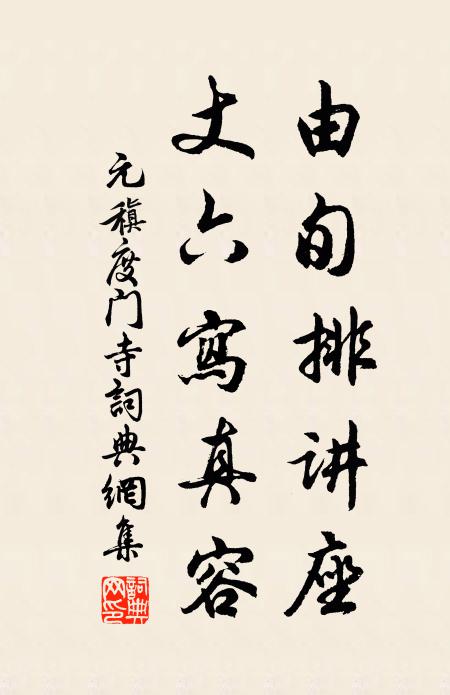 由旬排讲座
丈六寫真容
元稹度门寺詞典網集